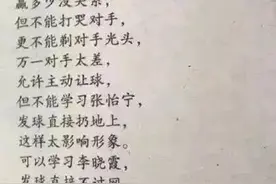 赢多少没关系,
但不能打哭对手,
更不能剃对手光头,
万一对手太差,
允许主动让球,
但不能学习张怡宁,
发球直接扔地上,
这样太影响形象。
可以学习李晓霞,
发球直接不过网